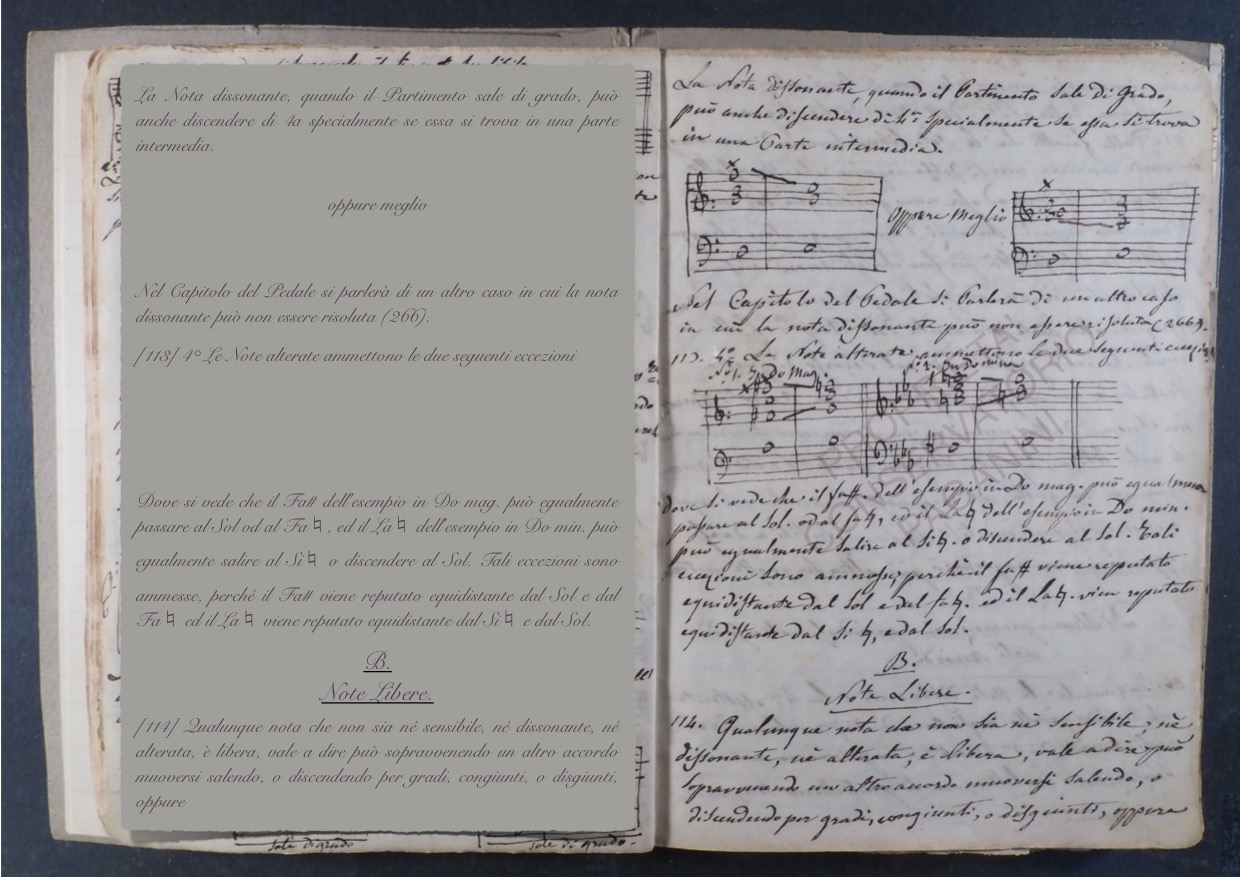 La Nota dissonante, quando il Partimento sale di grado, può
anche discendere di 4a specialmente se essa si trova in una parte
intermedia.
oppure meglio
Nel Capitolo del Pedale si parlerà di un altro caso in cui la nota
dissonante può non essere risoluta (266).
[113] 4° Le Note alterate ammettono le due seguenti eccezioni
Dove si vede che il Fa# dell'esempio in Do mag. può egualmente
passare al Sol od al Fa ♮, ed il La ♮ dell'esempio in Do min. può
egualmente salire al Si ♮ o discendere al Sol. Tali eccezioni sono
ammesse, perché il Fa# viene reputato equidistante dal Sol e dal
Fa ♮ ed il La ♮ viene reputato equidistante dal Si ♮ e dal Sol.
B.
Note Libere.
[114] Qualunque nota che non sia né sensibile, né dissonante, né
alterata, è libera, vale a dire può sopravvenendo un altro accordo
muoversi salendo, o discendendo per gradi, congiunti, o disgiunti,
oppure
Sale di grado
Sale di grado.
La Nota dissonante, quando il Partimento Sale di Grado,
può anche discendere di 4ª specialmente se essa si trova
in una Parte intermedia.
oppure meglio
Nel Capitolo del Pedale si Parlerà di un altro caso
in cui la nota dissonante può non essere risoluta (266).
113. 4º Le Note alterate ammettono le due seguenti eccezioni
Nº 1. In Do Mag. Nº 2. In Do minore
dove si vede che il fa#. dell'esempio in Do mag. può egualmente
passare al Sol. od al fa♮, ed il La♮ dell'esempio in Do min.
può egualmente salire al Si♮. o discendere al Sol. Tali
eccezioni sono ammesse, perchè il fa# viene reputato
equidistante dal Sol e dal fa♮. ed il La♮. vien reputato
equidistante dal Si ♮, e dal Sol.
B.
Note Libere.
114. Qualunque nota che non sia nè sensibile, nè
dissonante, nè alterata, è libera, vale a dire può
sopravvenendo un altro accordo muoversi salendo, o
discendendo per gradi, congiunti, o disgiunti, oppure